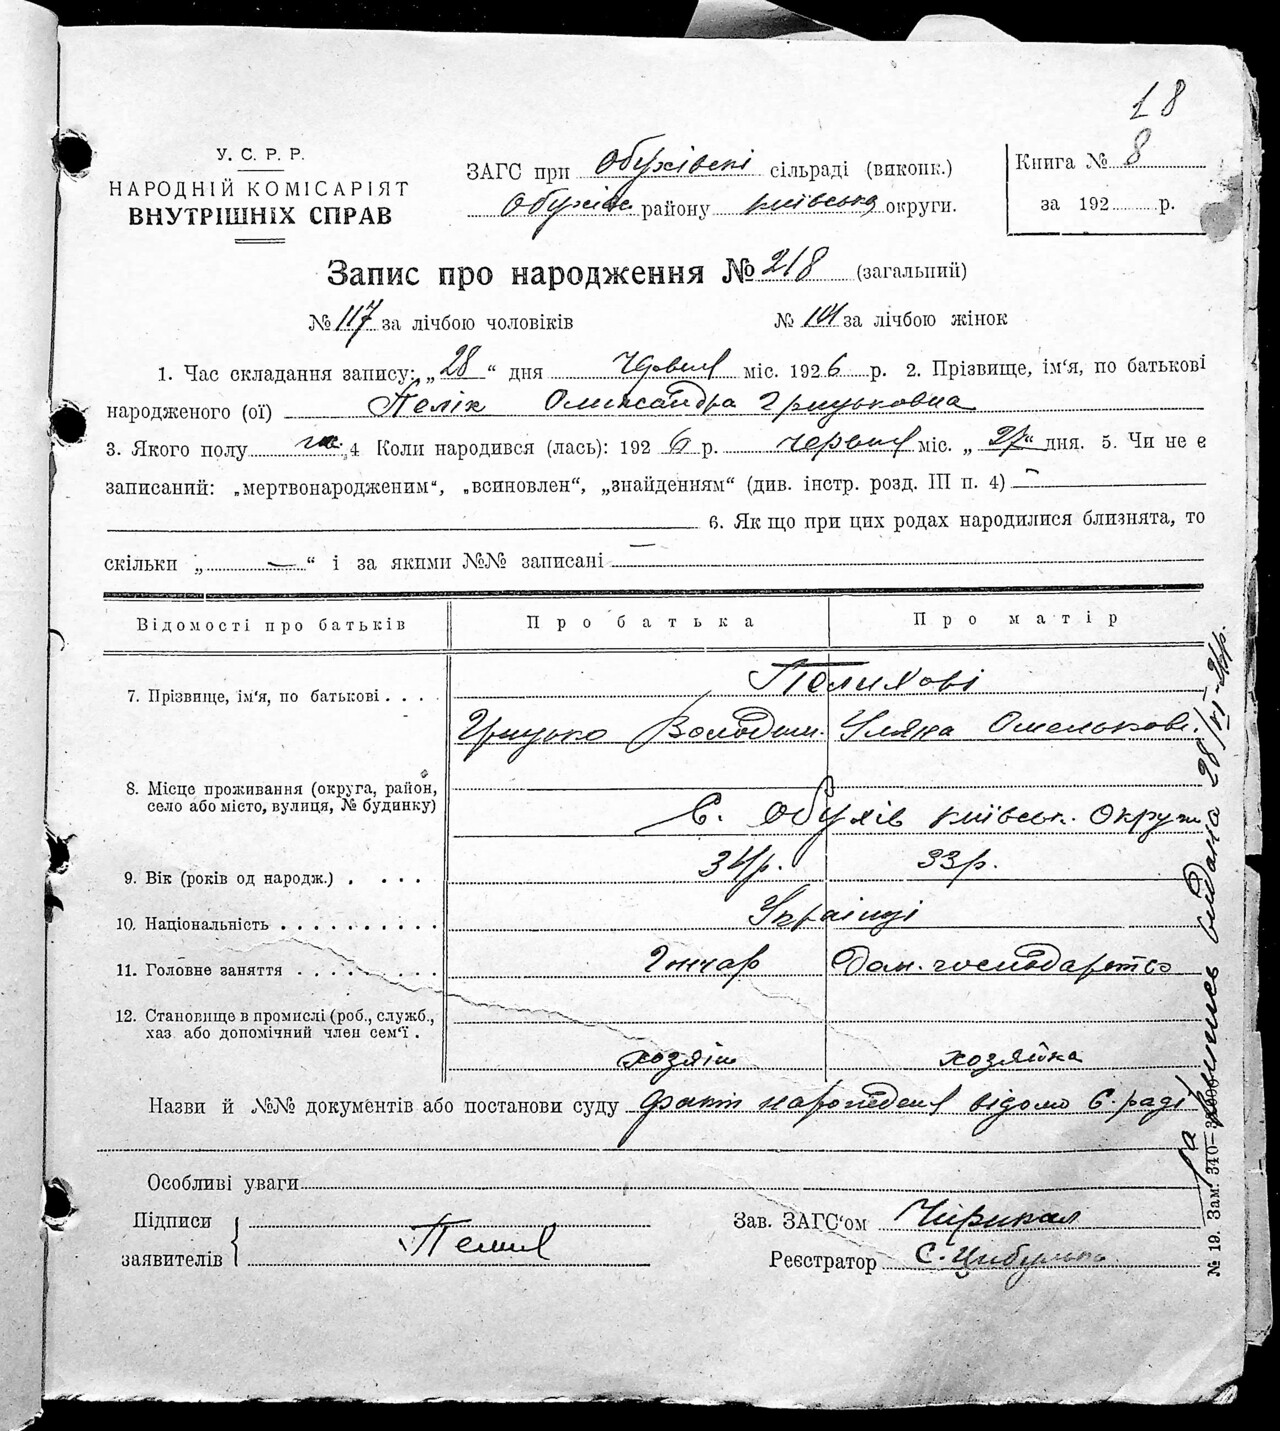 18
У. С. Р. Р.
НАРОДНІЙ КОМІСАРІЯТ
ВНУТРІШНІХ СПРАВ
ЗАГС при Обухівскі сільраді (виконк.)
Обухів. району Київська округи.
Книга № 8
за 192 р.
Запис про народження № 218 (загальний)
№ 117 за лічбою чоловіків № 101 за лічбою жінок
1. Час складання запису: „ 28 “ дня Червня міс. 1926 р. 2. Прізвище, ім'я, по батькові
народженого (ої) Пелік Олександра Грицьковна
3. Якого полу ж. 4 Коли народився (лась): 1926 р. червня міс. „ 27 “ дня. 5. Чи не є
записаний: „мертвонародженим“, „всиновлен“, „знайденням“ (див. інстр. розд. III п. 4) —
6. Як що при цих родах народилися близнята, то
скільки „ — “ і за якими №№ записані —
Відомості про батьків Про батька Про матір
7. Прізвище, ім'я, по батькові . . . . Пелихові
Грицько Володим. Уляна Омелькові.
8. Місце проживання (округа, район,
село або місто, вулиця, № будинку) С. Обухів Київськ. Округи
9. Вік (років од народж.) . . . . 34р. 33р.
10. Національність . . . . . . . . . . Українці
11. Головне заняття . . . . . . . . . Гончар Дом. господарство
12. Становище в промислі (роб., служб.,
хаз або допомічний член сем'ї . хозяїн хозяйка
Назви й №№ документів або постанови суду Факт народження відомо С. раді
Особливі уваги
Підписи
заявителів { Пелих
Зав. ЗАГС'ом
Реєстратор С. Цибулько
видана 28/VI-26р.
№ 19. Зам. 340—